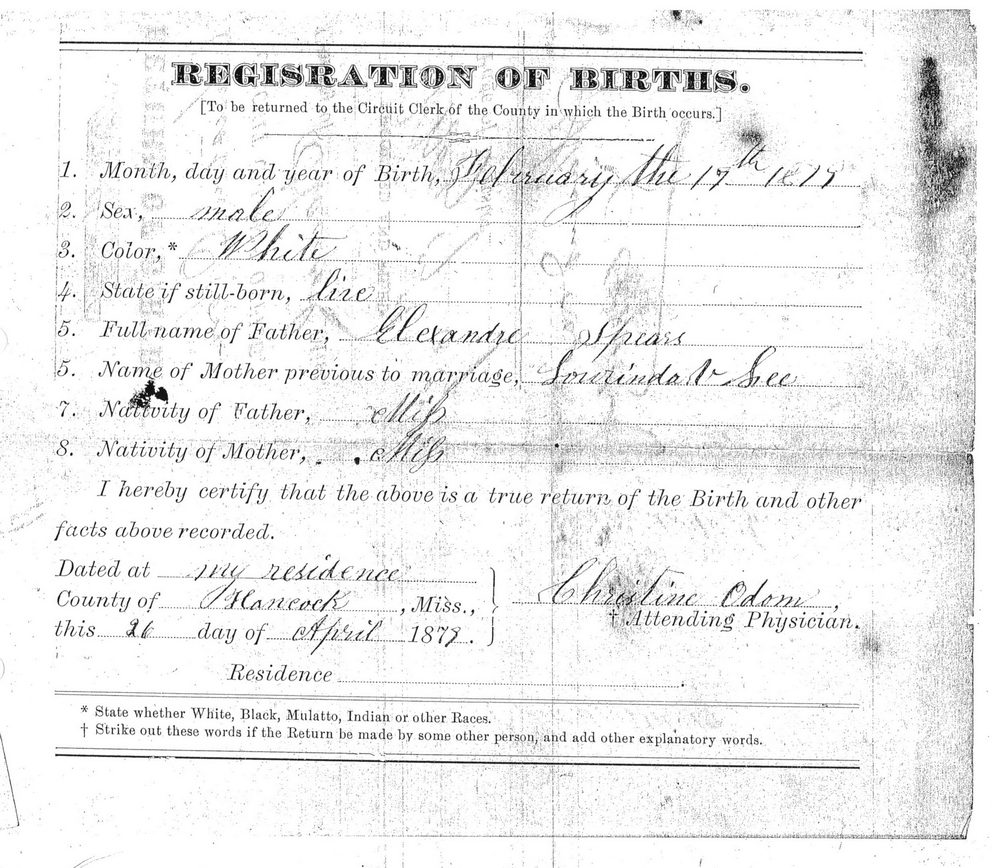 REGISRATION OF BIRTHS.
[To be returned to the Circuit Clerk of the County in which the Birth occurs.]
1. Month, day and year of Birth, February the 17th 1879
2. Sex, male
3. Color,* White
4. State if still-born, live
5. Full name of Father, Elexandre Spears
5. Name of Mother previous to marriage, Lourinda V Lee
7. Nativity of Father, Miss
8. Nativity of Mother, Miss
I hereby certify that the above is a true return of the Birth and other
facts above recorded.
Dated at my residence
County of Hancock, Miss.,
this 26 day of April 1879.
Christine Odom,
† Attending Physician.
Residence
* State whether White, Black, Mulatto, Indian or other Races.
† Strike out these words if the Return be made by some other person, and add other explanatory words.